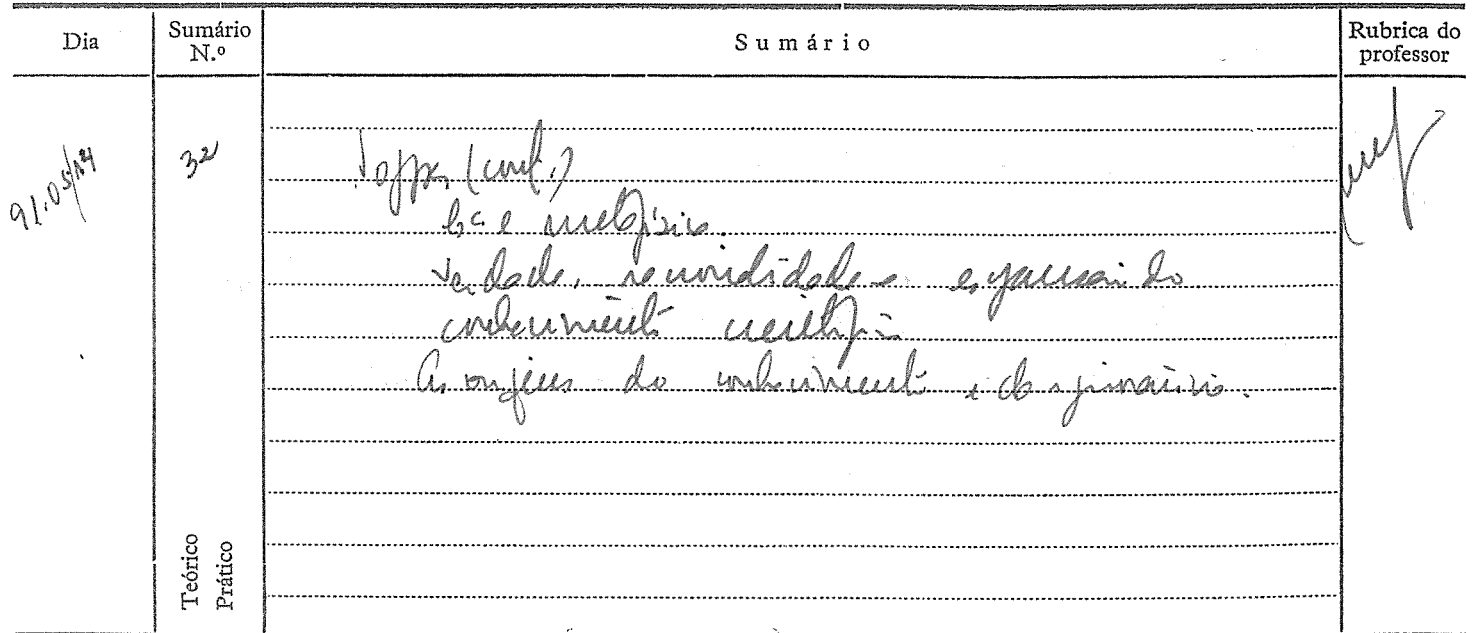 Dia
Sumário N.º
Sumário
Rubrica do professor
91.05/14
32
Popper (cont.)
e metafísica.
Verdade, verosimilitude e expansão do
conhecimento científico
As origens do conhecimento e da ignorância.
Teórico
Prático